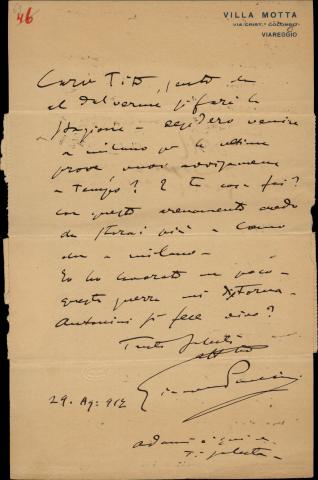 46
VILLA MOTTA
VIA CRIST. COLOMBO
VIAREGGIO
Caro Tito, sento che
al Dal Verme si farà la
stagione - desidero venire
a milano per le ultime
prove vuoi avvisarmene
a tempo? E tu cosa fai?
con questo credo
da più a Como
che a milano -
Io ho lavorato un poco -
questa guerra mi
Antonini si fece vivo?
Tanti saluti
aff
Giacomo Puccini
29. Ag: 912
Adami è qui e
ti saluta -